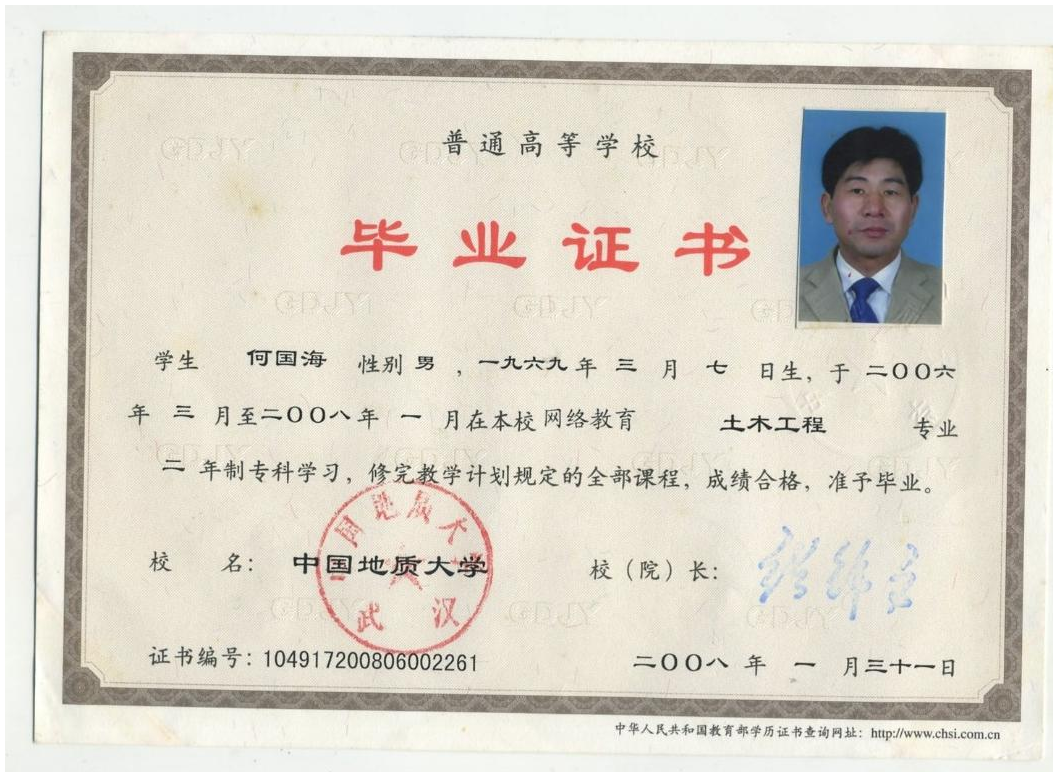 普通高等学校
毕业证书
学生 何国海 性别 男 ，一九六九年 三 月 七 日生，于 二〇〇六
年 三 月至二〇〇八年 一 月在本校 网络教育 土木工程 专业
二 年制专科学习，修完教学计划规定的全部课程，成绩合格，准予毕业。
校 名： 中国地质大学 校（院）长：
中国地质大学
武汉
证书编号：104917200806002261 二〇〇八 年 一 月三十一日
中华人民共和国教育部学历证书查询网址：http://www.chsi.com.cn